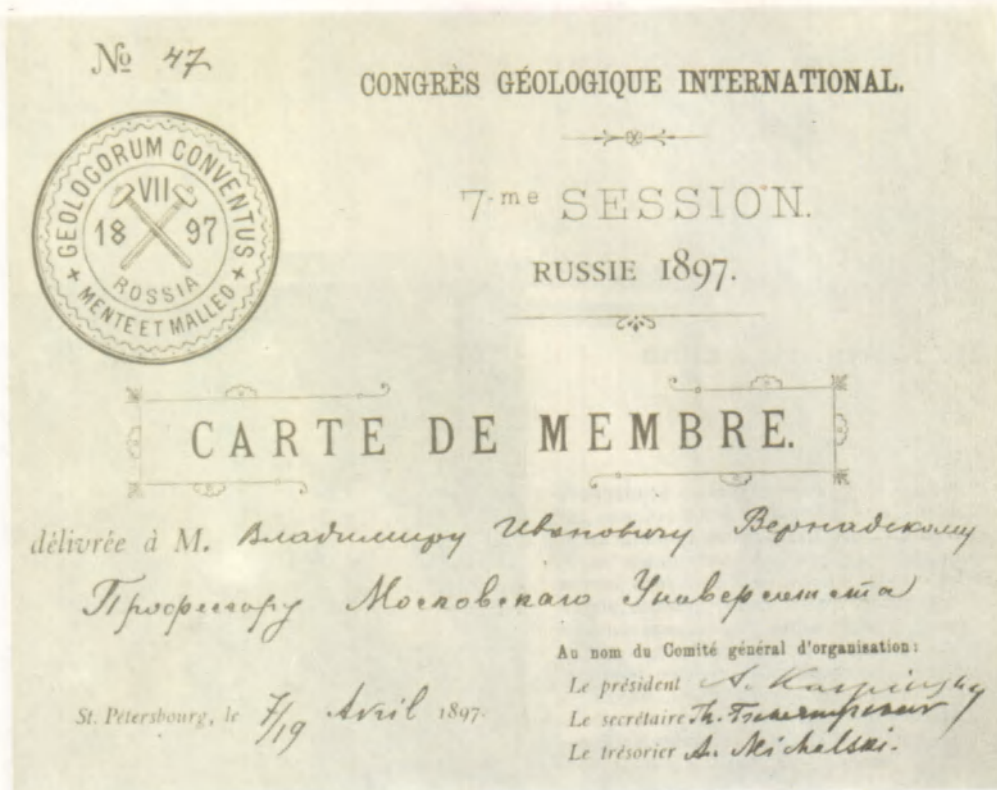 № 47
CONGRÈS GÉOLOGIQUE INTERNATIONAL.
GEOLOGORUM CONVENTUS
VII
18 97
ROSSIA
MENTE ET MALLEO
7-me SESSION.
RUSSIE 1897.
CARTE DE MEMBRE.
délivrée à M. Владимиру Ивановичу Вернадскому
Профессору Московскаго Университета
Au nom du Comité général d'organisation:
Le président A. Karpinsky
St. Pétersbourg, le 7/19 Avril 1897.
Le secrétaire Th.
Le trésorier A. Michalski.